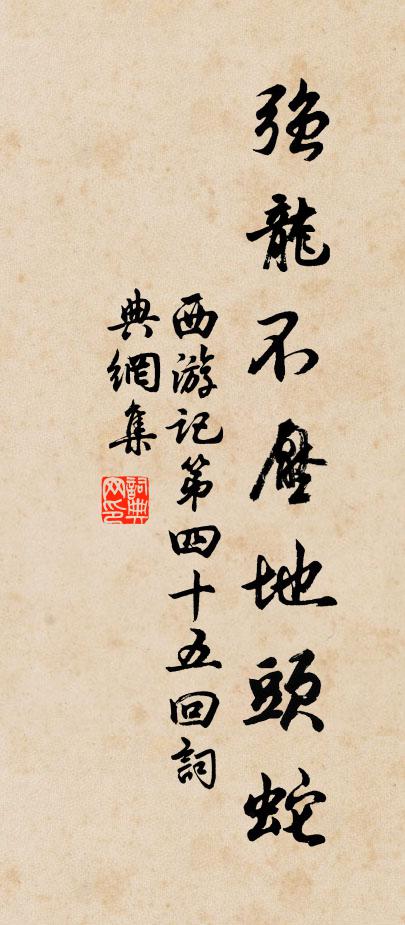 强龍不壓地頭蛇
西游记第四十五回詞
典網集
詞典网印